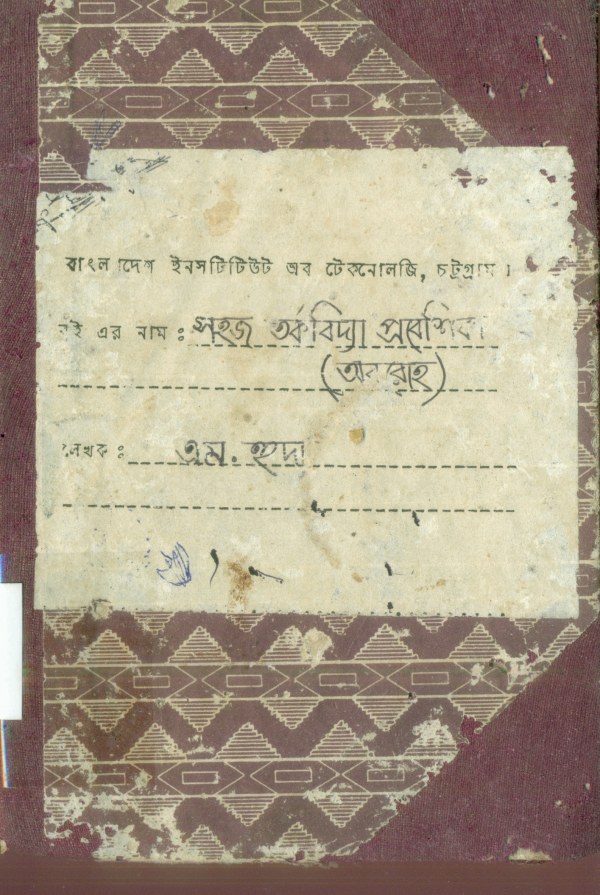 বাংলাদেশ ইনসটিটিউট অব টেকনোলজি, চট্রগ্রাম ।
বই এর নাম : সহজ তর্কবিদ্যা প্রবেশিকা
(অবরোহ)
লেখক : এম. হুদা